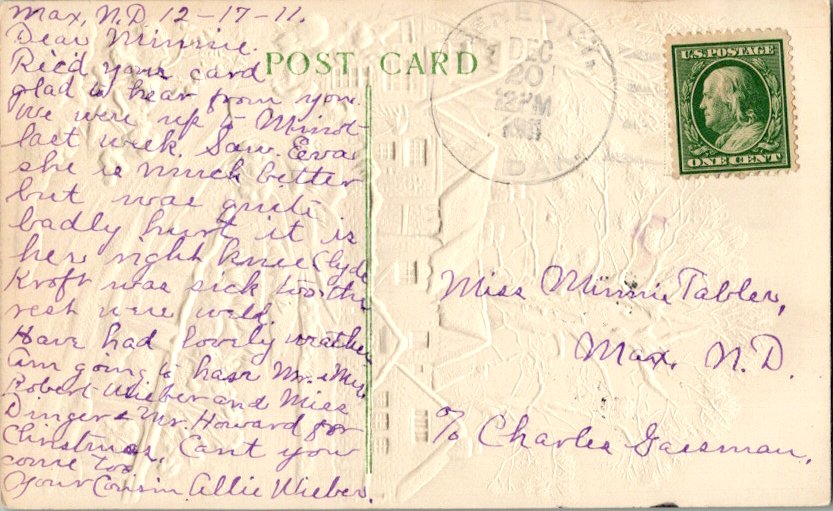 Max, N.D 12-17-11.
Dear Minnie.
Rec'd your card
glad to hear from you.
We were up to Minot
last week. Saw Eeva
she is much better
but was quite
badly hurt it is
her right knee Clyde
Kroft was sick too. the
rest were well.
Have had lovely weather
am going to have Mr. & Mrs
Robert Wieber and Miss
Dinger & Mr. Howard for
Christmas. Can't you
come too
Your Cousin Allie Wieber.
POST CARD
DEC
20
12 PM
1911
DAK.
U.S. POSTAGE
ONE CENT
Miss Minnie Tabler,
Max. N.D.
c/o Charles Gassman,